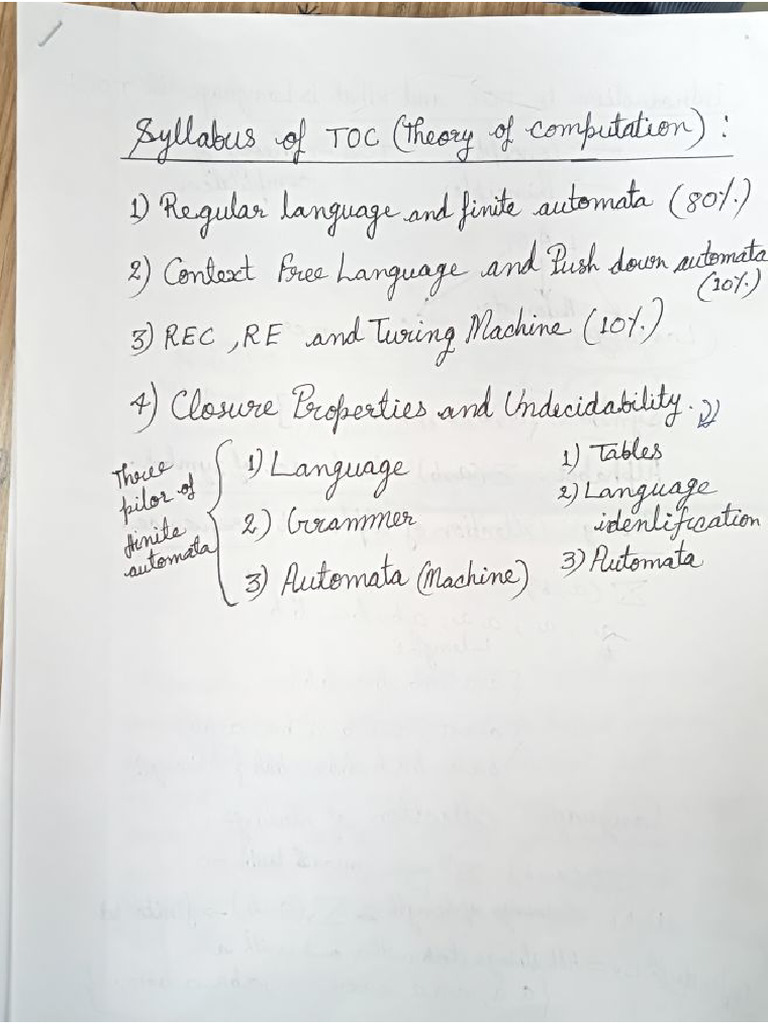 Syllabus of TOC (Theory of computation) :
1) Regular language and finite automata (80%.)
2) Context Free Language and Push down automata
(10%.)
3) REC, RE and Turing Machine (10%.)
4) Closure Properties and Undecidability.
Three
pilor of
finite
automata
1) Language
2) Grammer
3) Automata (Machine)
1) Tables
2) Language
identification
3) Automata